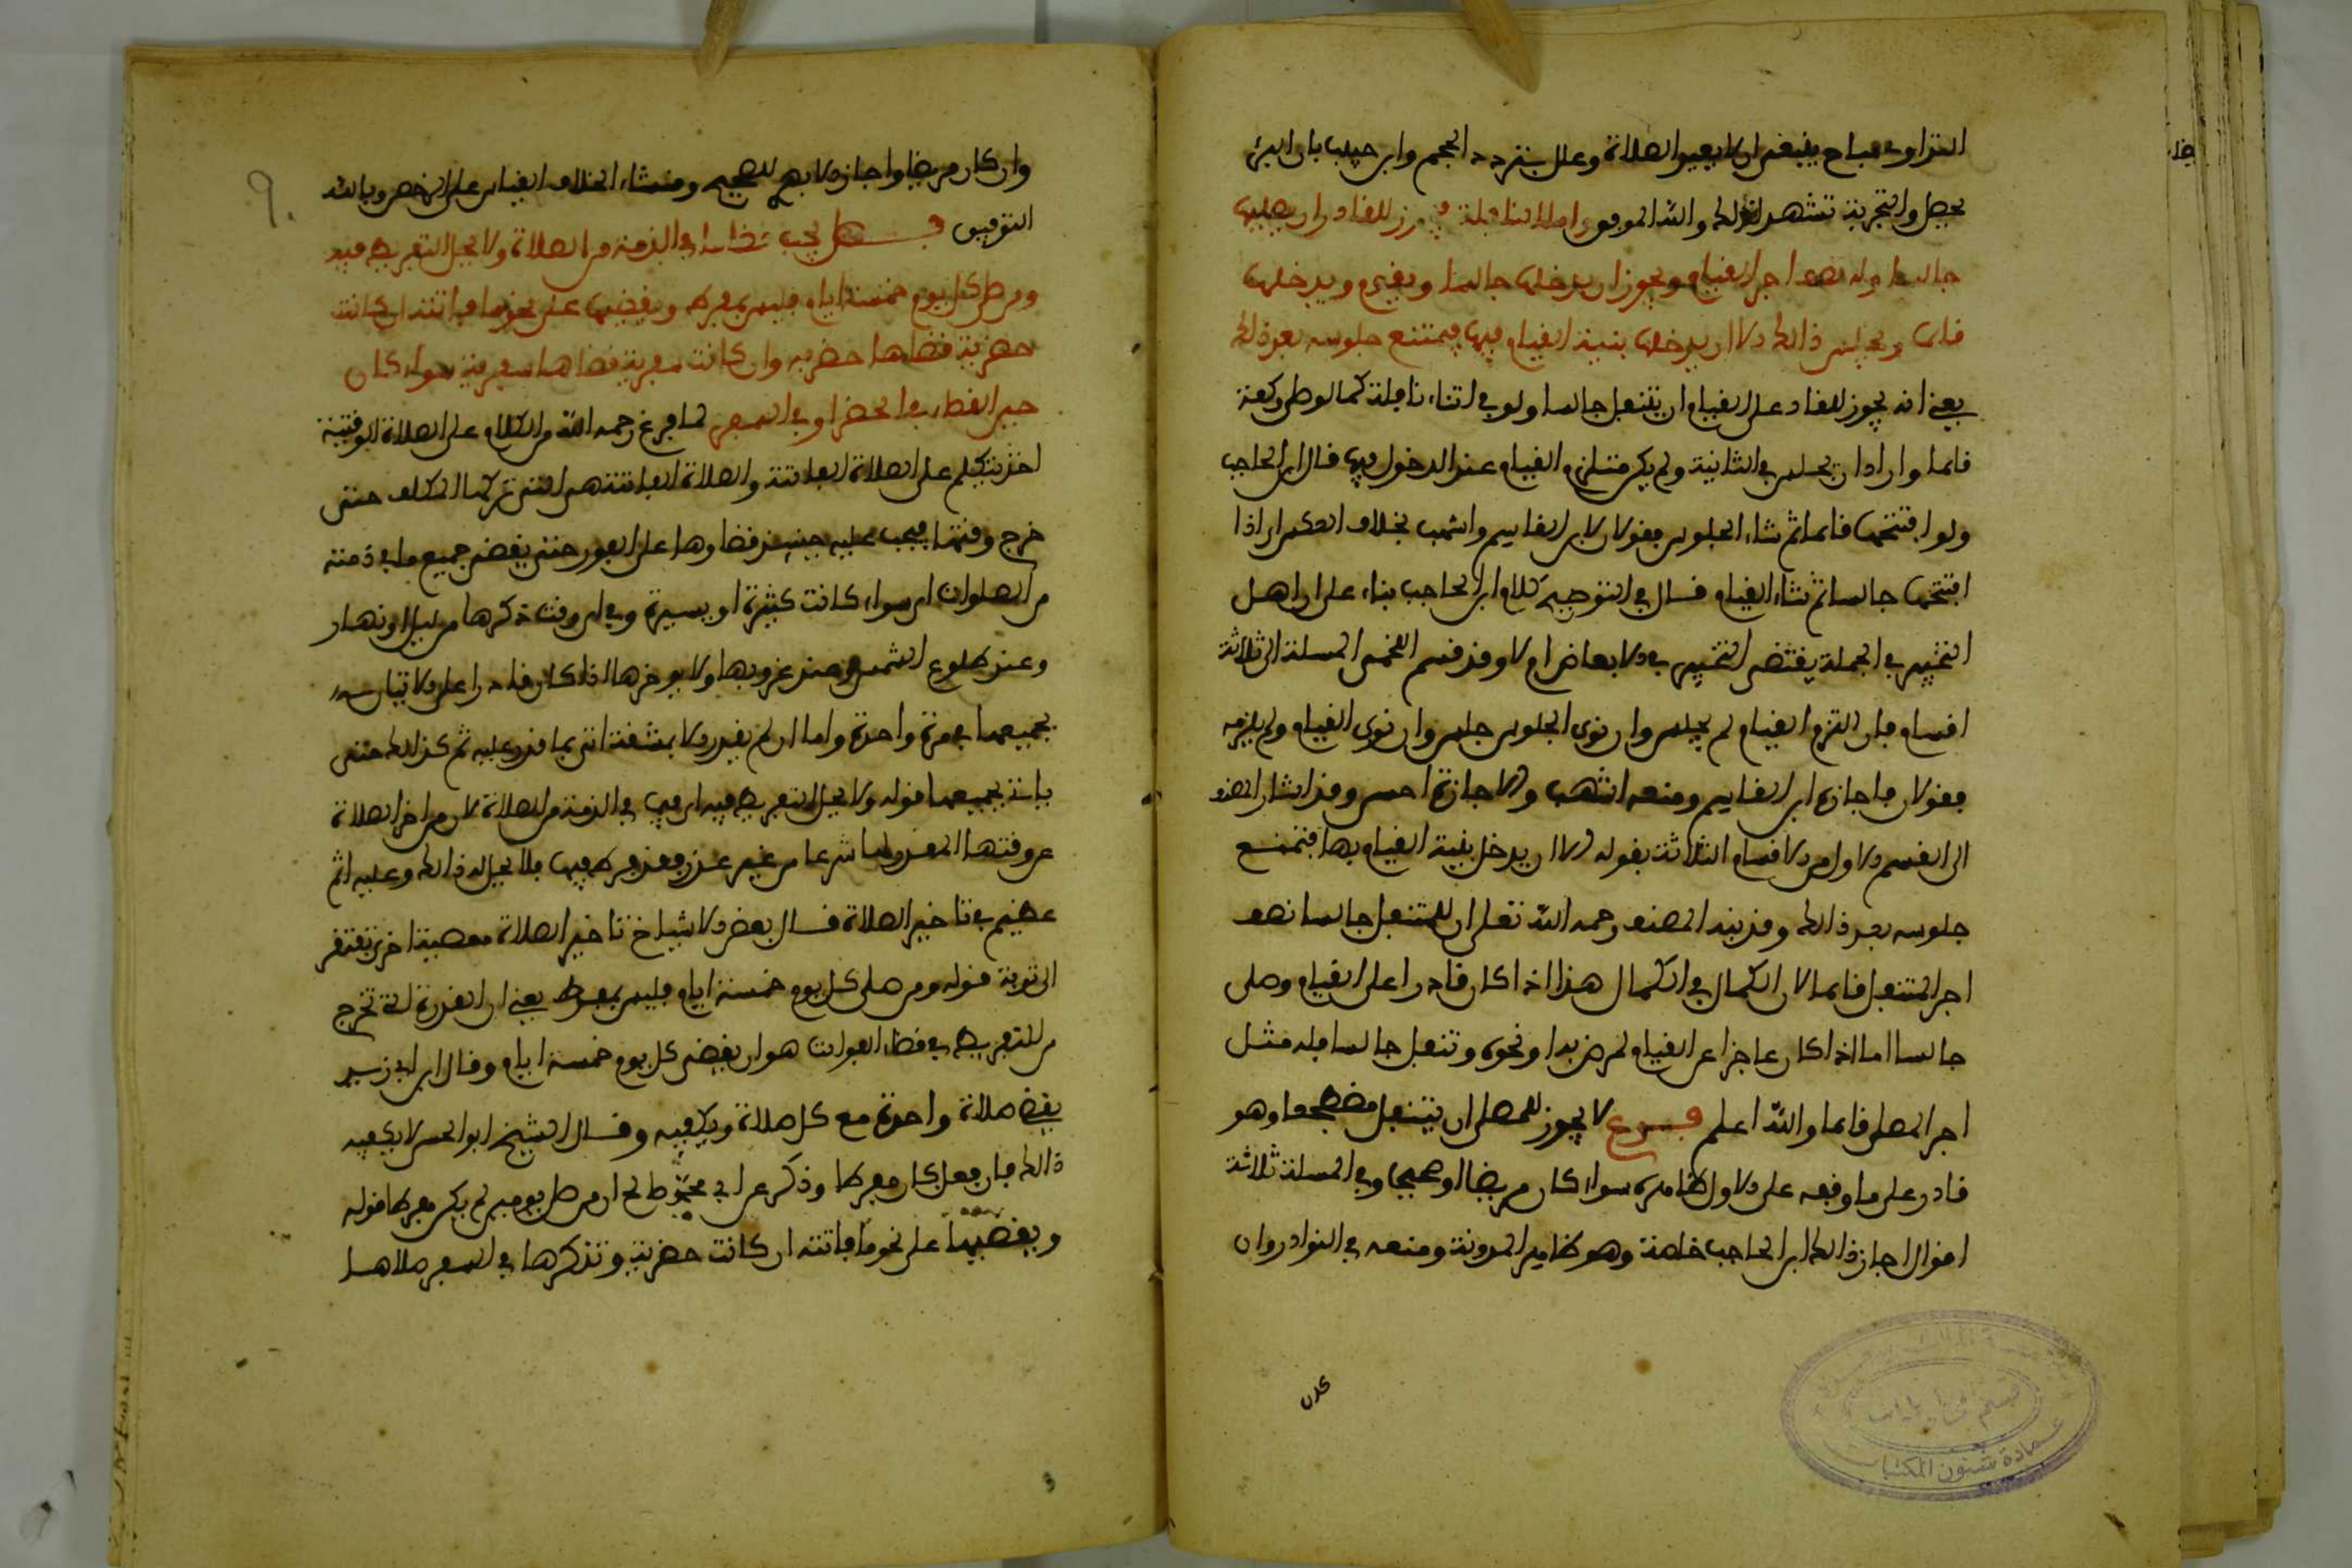 التداوي مباح ينبغي ان لا يعيد الصلاة وعلل بتردد النجم وابن حبيب بان البرء
يحصل والتجربة تشهد لذلك والله الموفق واما النافلة فيجوز للقادر ان يصليها
جالسا وله نصف اجر القيام ويجوز ان يدخلها جالسا ويقوم ويدخلها
قائما ويجلس ذالك الا ان يدخلها بنية القيام فيها فيمتنع جلوسه بعد ذالك
يعني انه يجوز للقادر على القيام ان يتنفل جالسا ولو في اثناء نافلة كما لو صلى ركعة
قائما واراد ان يجلس في الثانية ولم يكن ملتزم القيام عند الدخول فيها قال ابن الحاجب
ولو افتتحها قائما ثم شاء الجلوس فقولان لابن القاسم واشهب بخلاف العكس اي اذا
افتتحها جالسا ثم شاء القيام قال في التوضيح كلام ابن الحاجب بناء على ان اهل
التخيير في الجملة يقتضي التخيير في الابعاض ام لا وقد قسم اللخمي المسئلة الى ثلاثة
اقسام فان التزم القيام لم يجلس وان نوى الجلوس جلس وان نوى القيام ولم يلزمه
فقولان فاجازه ابن القاسم ومنعه اشهب والاجازة احسن وقد اشار المصنف
الى القسم الاول من الاقسام الثلاثة بقوله الا ان يدخل بنية القيام بها فيمتنع
جلوسه بعد ذالك وقد نبه المصنف رحمه الله تعلى ان للمتنفل جالسا نصف
اجر المتنفل قائما لان الكمال في الكمال هذا اذا كان قادرا على القيام وصلى
جالسا اما اذا كان عاجزا عن القيام لمرض بدا ونحوه وتنفل جالسا فله مثل
اجر المصلي قائما والله اعلم فرع لا يجوز للمصلي ان يتنفل مضطجعا وهو
قادر على ما وقعه على الاول ظاهره سواء كان مريضا او صحيحا وفي المسئلة ثلاثة
اقوال اجاز ذالك ابن الحاجب خاصة وهو ظاهر المدونة ومنعه في النوادر وان
كان
وان كان مريضا واجازه الابهري للصحيح ومنشاء الخلاف القياس على الرخص وبالله
التوفيق فصل يجب قضاء ما في الذمة من الصلاة ولا يحل التفريط فيه
ومن صلى كل يوم خمسة ايام فليس بمفرط ويقضيها على نحو ما فاتته ان كانت
حضرية قضاها حضرية وان كانت سفرية قضاها سفرية سواء كان
حين القضاء في الحضر او في السفر لما فرغ رحمه الله من الكلام على الصلاة الوقتية
اخذ يتكلم على الصلاة الفائتة والصلاة الفائتة هي التي تركها المكلف حتى
خرج وقتها فيجب عليه حينئذ قضاؤها على الفور حتى يقضي جميع ما في ذمته
من الصلوات اي سواء كانت كثيرة او يسيرة وفي اي وقت ذكرها من ليل او نهار
وعند طلوع الشمس وعند غروبها ولا يؤخرها اذا كان قادرا على الاتيان
بجميعها في مرة واحدة واما ان لم يقدر الا بمشقة اتى بما قدر عليه ثم كذالك حتى
ياتي بجميعها قوله ولا يحل التفريط فيه اي فيما في الذمة من الصلاة لان من اخر الصلاة
عن وقتها المعروف لها شرعا من غير عذر فقد فرط فيها فلا يحل له ذالك وعليه اثم
عظيم في تاخير الصلاة قال بعض الاشياخ تاخير الصلاة معصية اخرى تفتقر
الى توبة قوله ومن صلى كل يوم خمسة ايام فليس بمفرط يعني ان القدرة التي تخرج
من التفريط في قضاء الفوائت هو ان يقضي كل يوم خمسة ايام وقال ابن ابي زيد
يقضي صلاة واحدة مع كل صلاة ويكفيه وقال الشيخ ابو الحسن لا يكفيه
ذالك فان فعل كان مفرطا وذكر عن ابي محمد صالح ان من صلى يومين لم يكن مفرطا قوله
ويقضيها على نحو ما فاتته ان كانت حضرية وتذكرها في السفر صلاها